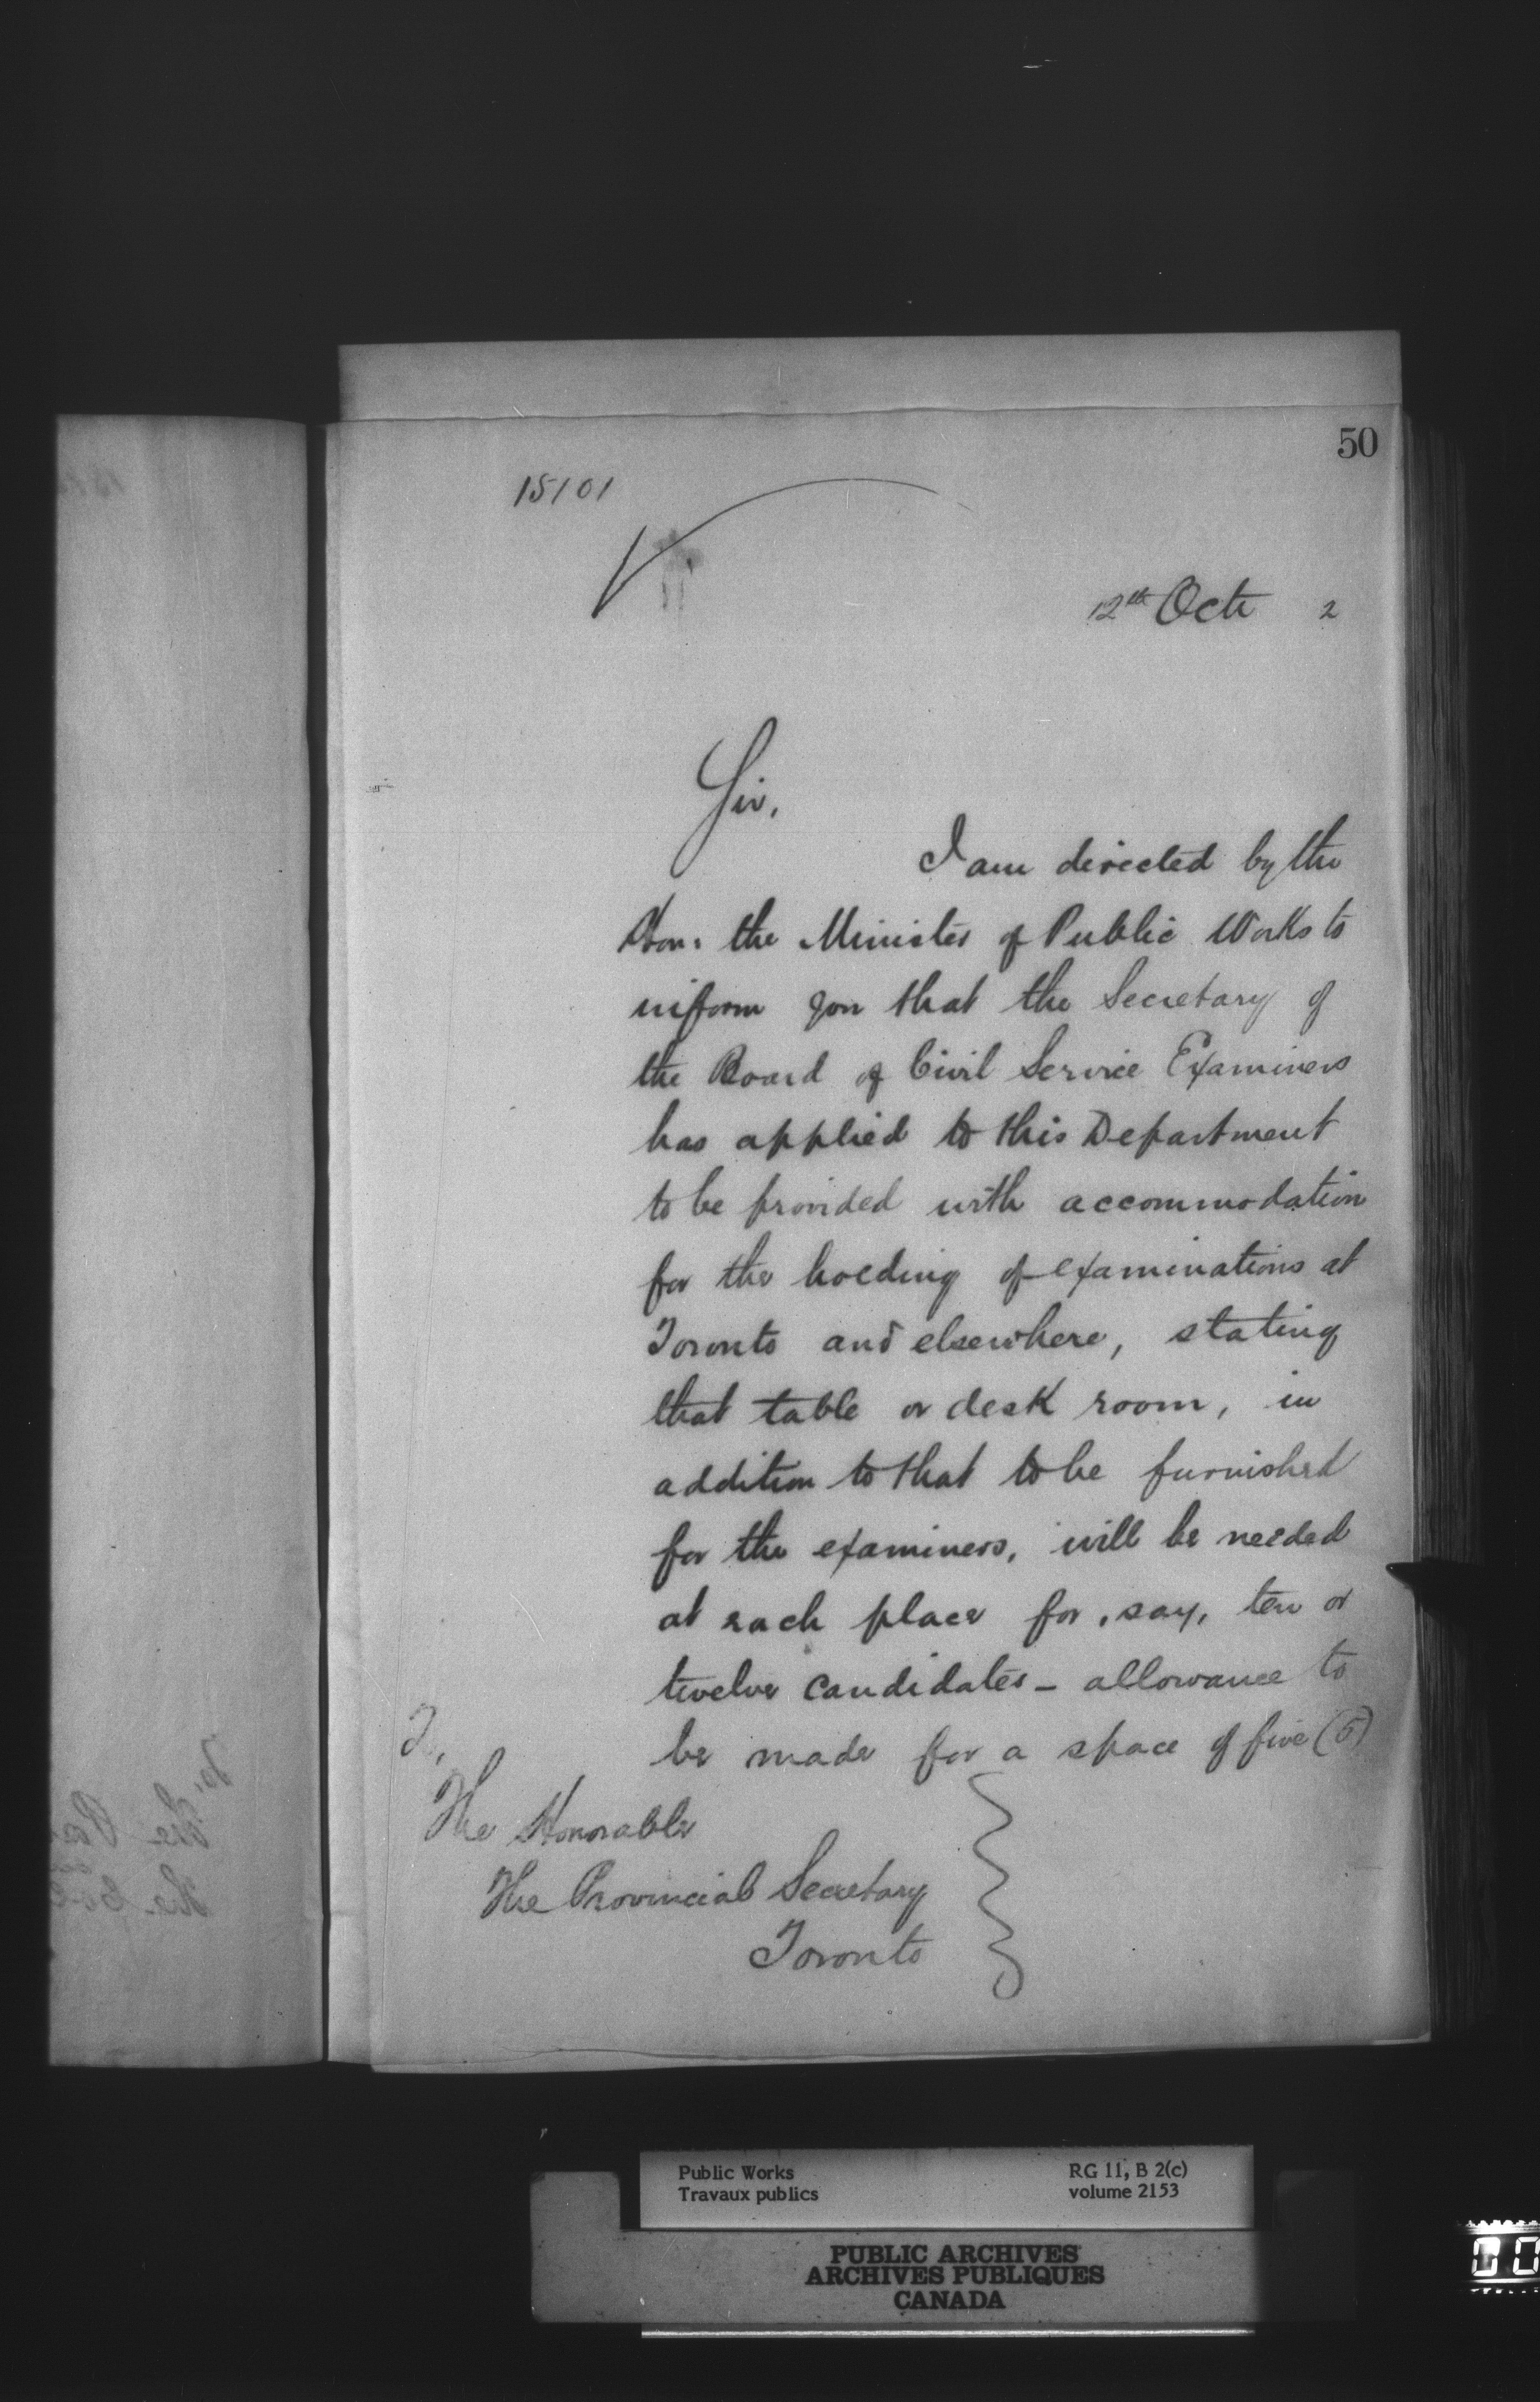 50
15101
12th Octr 2
Sir,
I am directed by the
Hon: the Minister of Public Works to
inform you that the Secretary of
the Board of Civil Service Examiners
has applied to this Department
to be provided with accommodation
for the holding of examinations at
Toronto and elsewhere, stating
that table or desk room, in
addition to that to be furnished
for the examiners, will be needed
at each place for, say, ten or
twelve candidates - allowance to
be made for a space of five (5)
To,
The Honorable
The Provincial Secretary
Toronto
Public Works
Travaux publics
RG 11, B 2(c)
volume 2153
PUBLIC ARCHIVES
ARCHIVES PUBLIQUES
CANADA